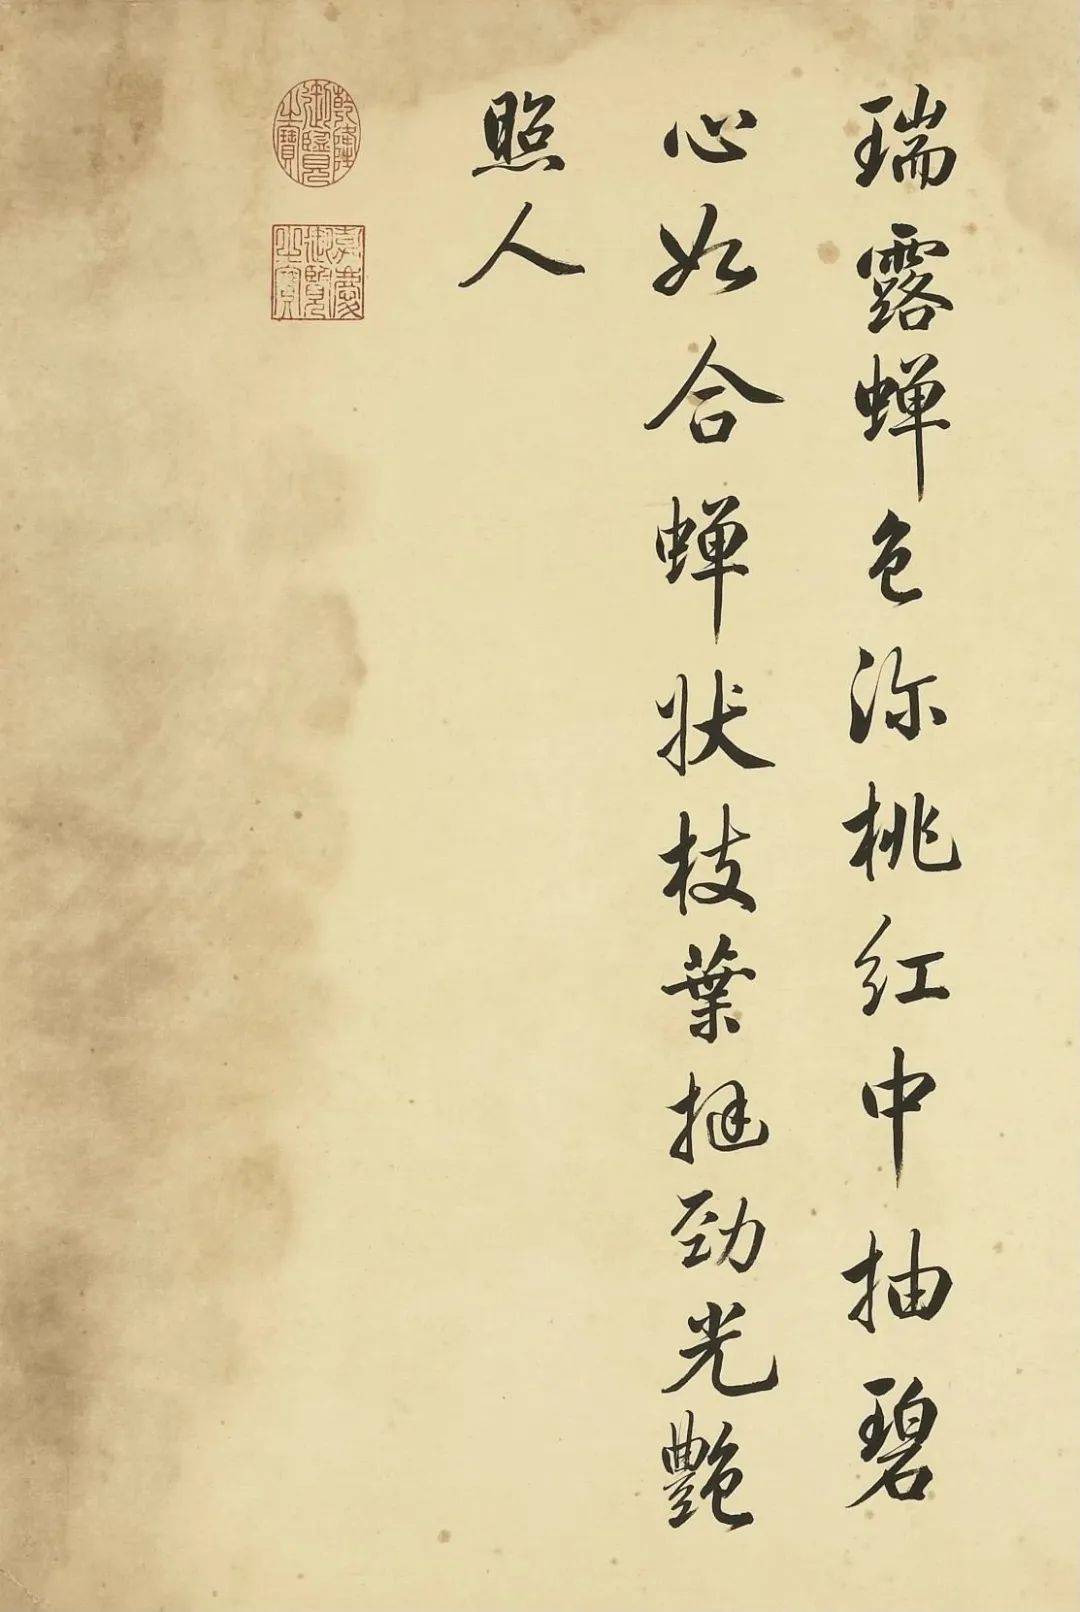 瑞露蝉色深桃红中抽碧
心如合蝉状枝葉挺劲光艷
照人
乾隆御覽之寶
嘉慶御覽之寶